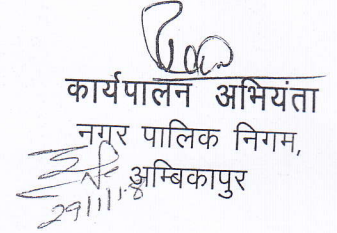 कार्यपालन अभियंता
नगर पालिक निगम,
अम्बिकापुर
29/1/18